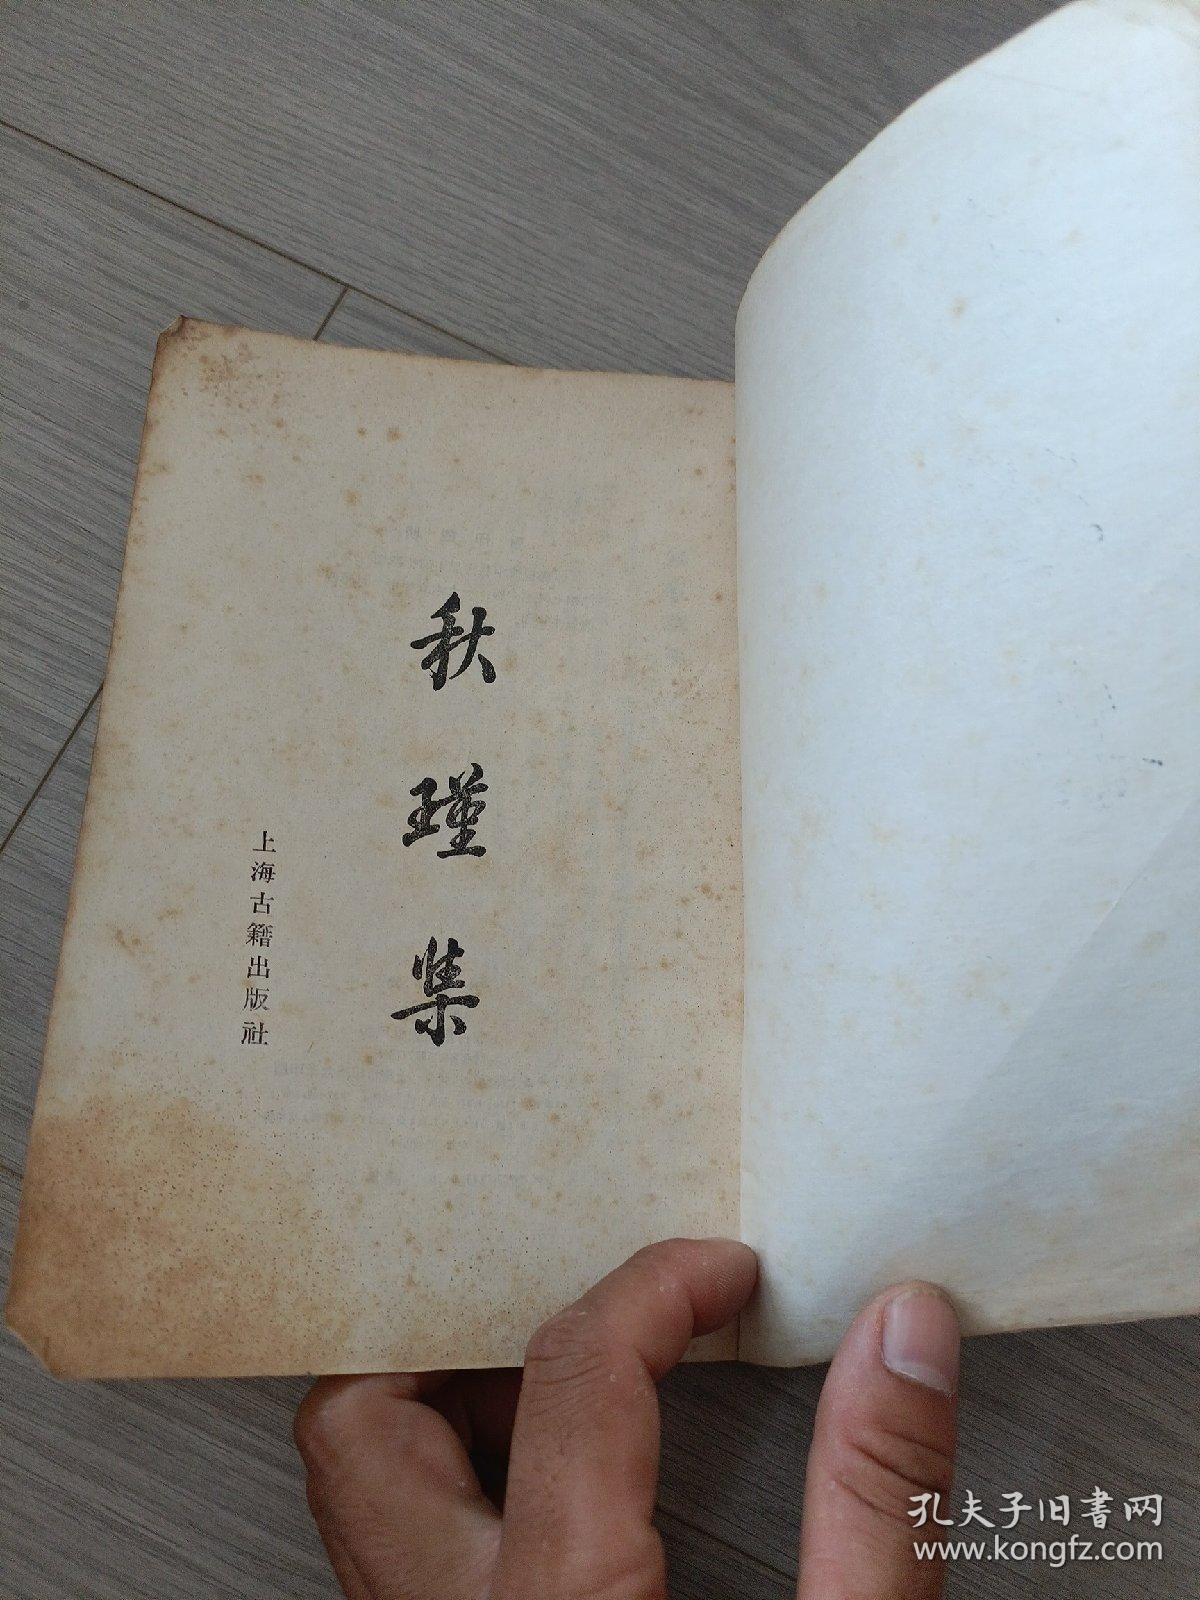 秋瑾集
上海古籍出版社
孔夫子旧書网
www.kongfz.com